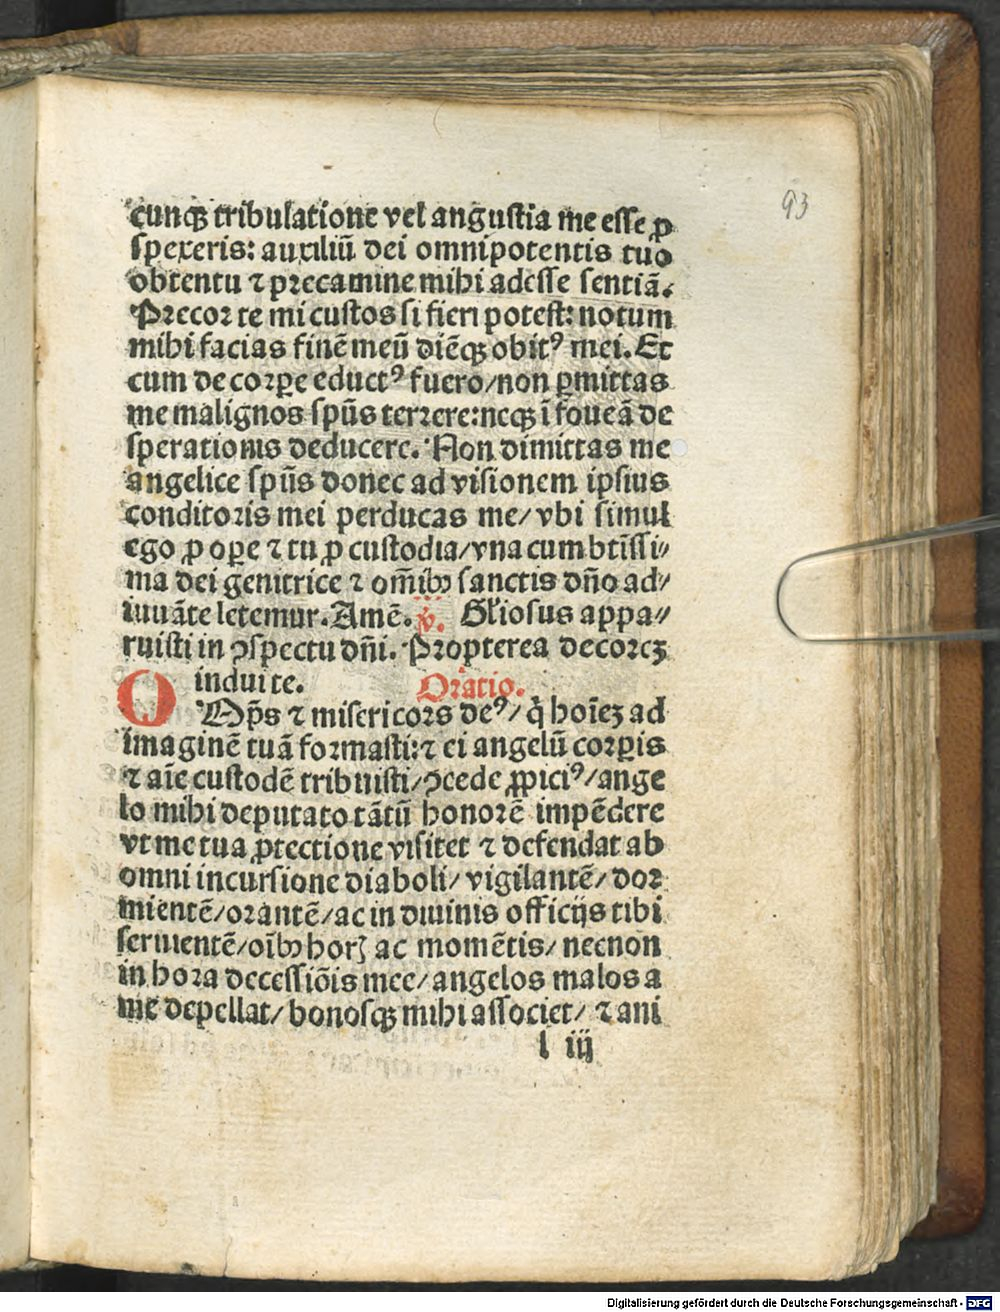 93
cunqꝫ tribulatione vel angustia me esse ꝓ
spexeris: auxiliū dei omnipotentis tuo
obtentu ⁊ precamine mihi adesse sentiā.
Precor te mi custos si fieri potest: notum
mihi facias finē meū diēqꝫ obitꝰ mei. Et
cum de corꝑe eductꝰ fuero/ non ꝑmittas
me malignos spūs terrere: neqꝫ ī foueā de
sperationis deducere. Non dimittas me
angelice spūs donec ad visionem ipsius
conditoris mei perducas me/ vbi simul
ego ꝓ oꝑe ⁊ tu ꝓ custodia/ vna cum btīssi⸗
ma dei genitrice ⁊ om̄ibꝫ sanctis dño ad⸗
iuuāte letemur. Amē. ꝟ. Gl̄iosus appa⸗
ruisti in ꝯspectu dñi. Propterea decorēꝫ
induit te. Oratio.
OMp̄s ⁊ misericors deꝰ/ q̇ hoīeꝫ ad
imaginē tuā formasti: ⁊ ei angelū corꝑis
⁊ aīe custodē tribuisti/ ꝯcede ꝓpiciꝰ/ ange
lo mihi deputato tātū honorē impēdere
vt me tua ꝓtectione visitet ⁊ defendat ab
omni incursione diaboli/ vigilantē/ dor
mientē/ orantē/ ac in diuinis officijs tibi
seruientē/ oībꝫ horꝭ ac momētis/ necnon
in hora decessiōis mee/ angelos malos a
me depellat/ bonosqꝫ mihi associet/ ⁊ ani
l iij
Digitalisierung gefördert durch die Deutsche Forschungsgemeinschaft - DFG